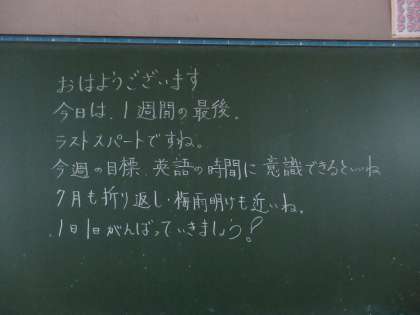 おはようございます
今日は、1週間の最後。
ラストスパートですね。
今週の目標、英語の時間に意識できるといいね
7月も折り返し・梅雨明けも近いね。
1日1日がんばっていきましょう!